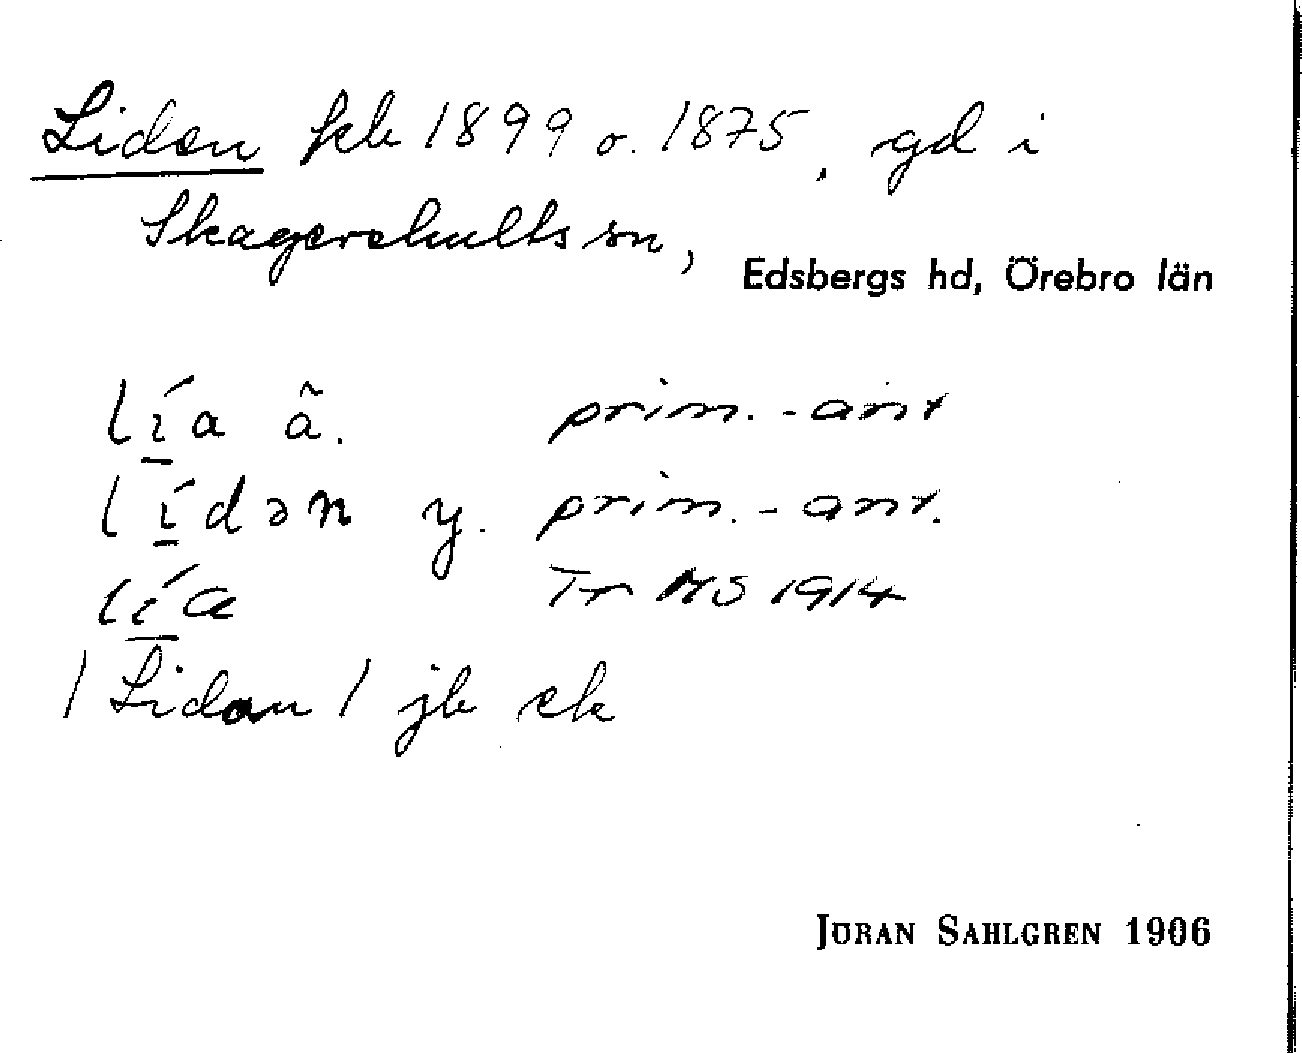 Liden fkb 1899 o. 1875, gd i
Skagershults sn,
Edsbergs hd, Örebro län
lı̲́a ã. prim.-ant
lı̲́dən y. prim.-ant.
lı̲́a Tr MS 1914
/Lidan/ jb ek
JÖRAN SAHLGREN 1906